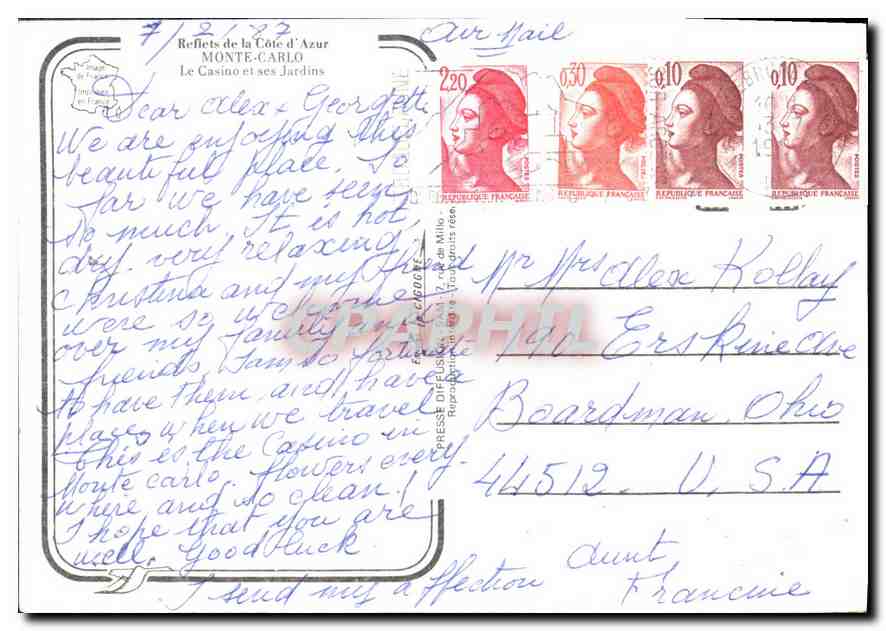 7/2/87
Air Mail
Reflets de la Côte d'Azur
MONTE-CARLO
Le Casino et ses Jardins
Image
de France
Imprimée
en France
Dear Alex + Georgett
We are enjoying this
beautiful place. So
far we have seen
so much. It is hot,
dry, very relaxing,
Christina and my friend
were so welcome
over my family and
friends, I am so fortunate
to have them, and have a
place when we travel
This is the Casino in
Monte Carlo. Flowers every-
where and so clean!
I hope that you are
well. Good luck
I send my affection
Aunt
Francine
2,20
0,30
0,10
0,10
POSTES
REPUBLIQUE FRANÇAISE
REPUBLIQUE FRANÇAISE
REPUBLIQUE FRANÇAISE
REPUBLIQUE FRANÇAISE
LA CIGOGNE
PRESSE DIFFUSION - SAM - 7, rue de Millo -
Reproduction interdite - Tous droits rése
CPAPHIL
Mr Mrs Alex Kollay
190 Erskine Ave
Boardman, Ohio
44512. U.S.A